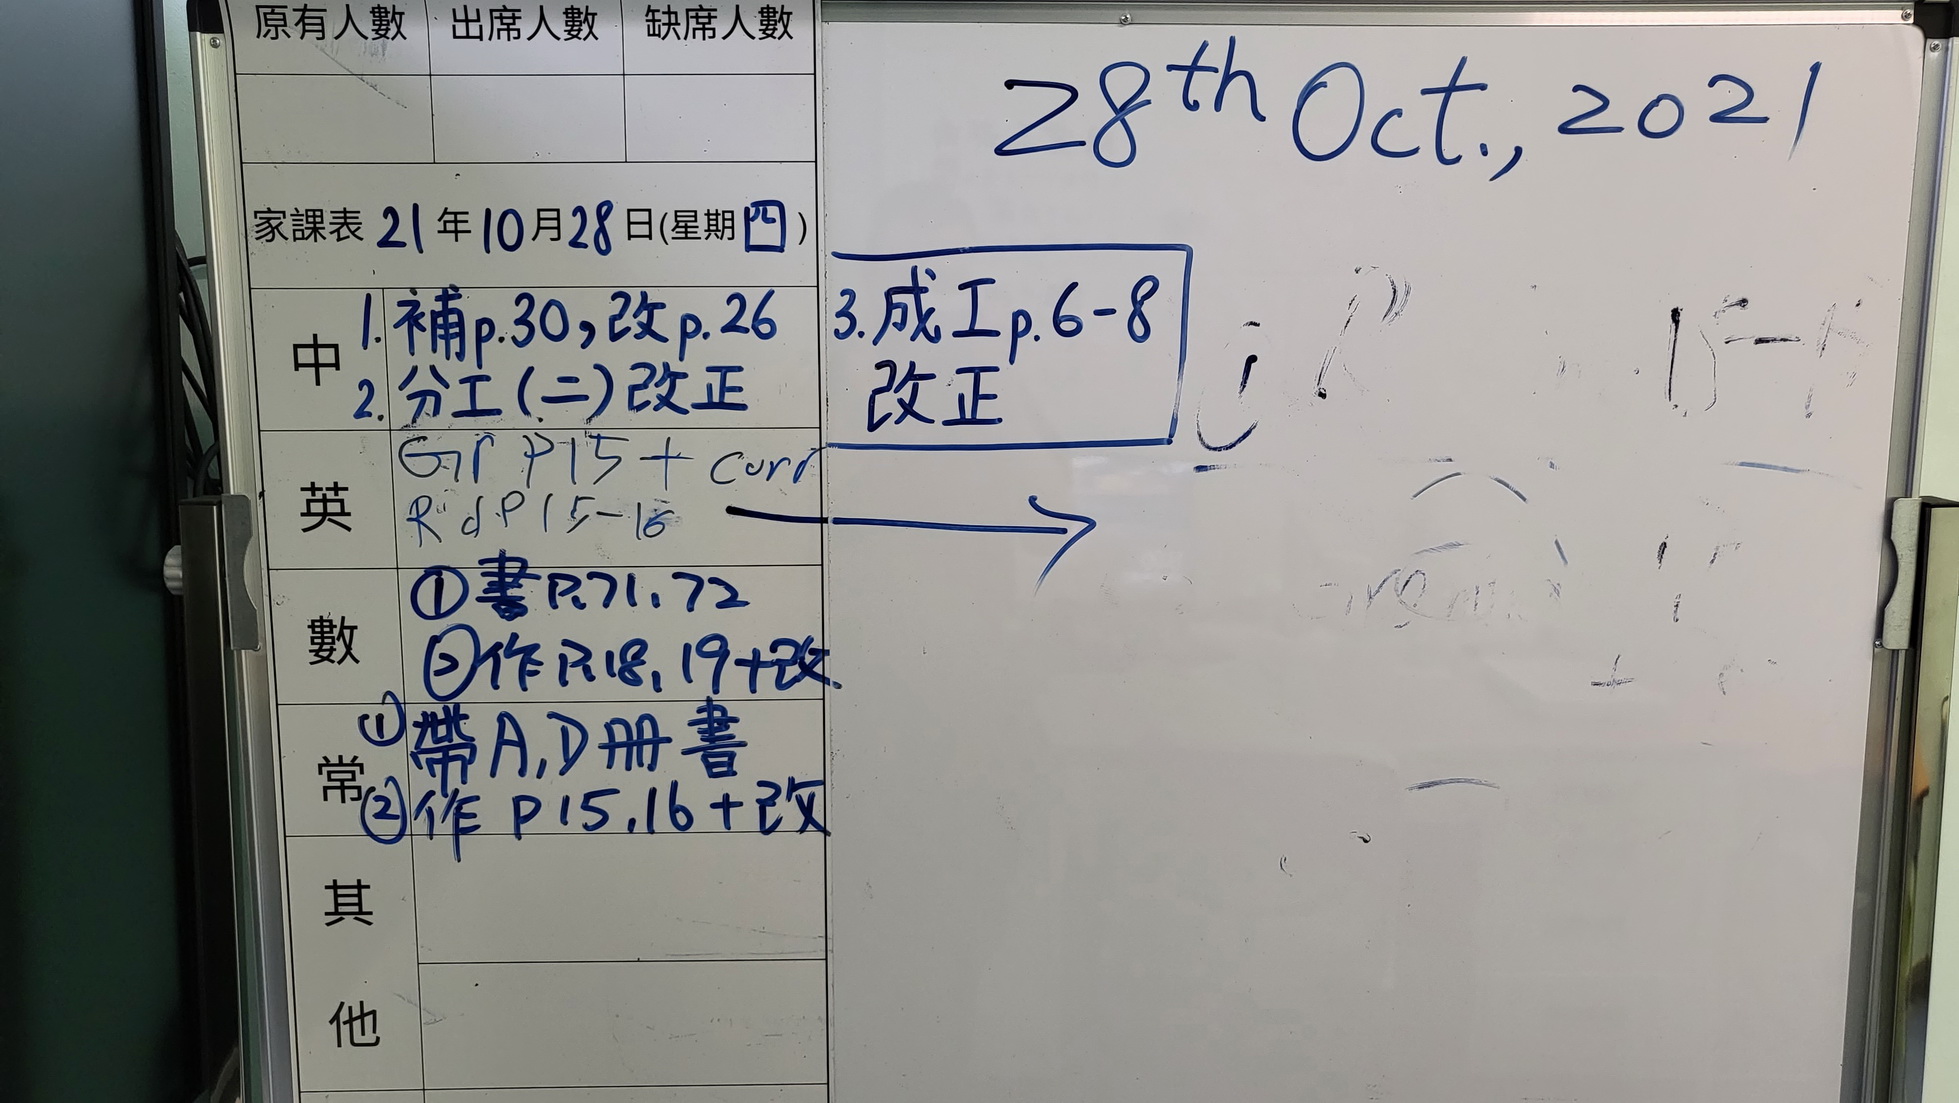 原有人數 出席人數 缺席人數
28th Oct., 2021
家課表 21年10月28日(星期四)
中
1. 補p.30,改p.26
2. 分工(二)改正
3. 成工p.6-8
改正
英
Gr P15 + corr
Rd P15-16
數
①書P.71,72
②作P.18,19+改
常
①帶A,D冊書
②作 P15,16+改
其
他